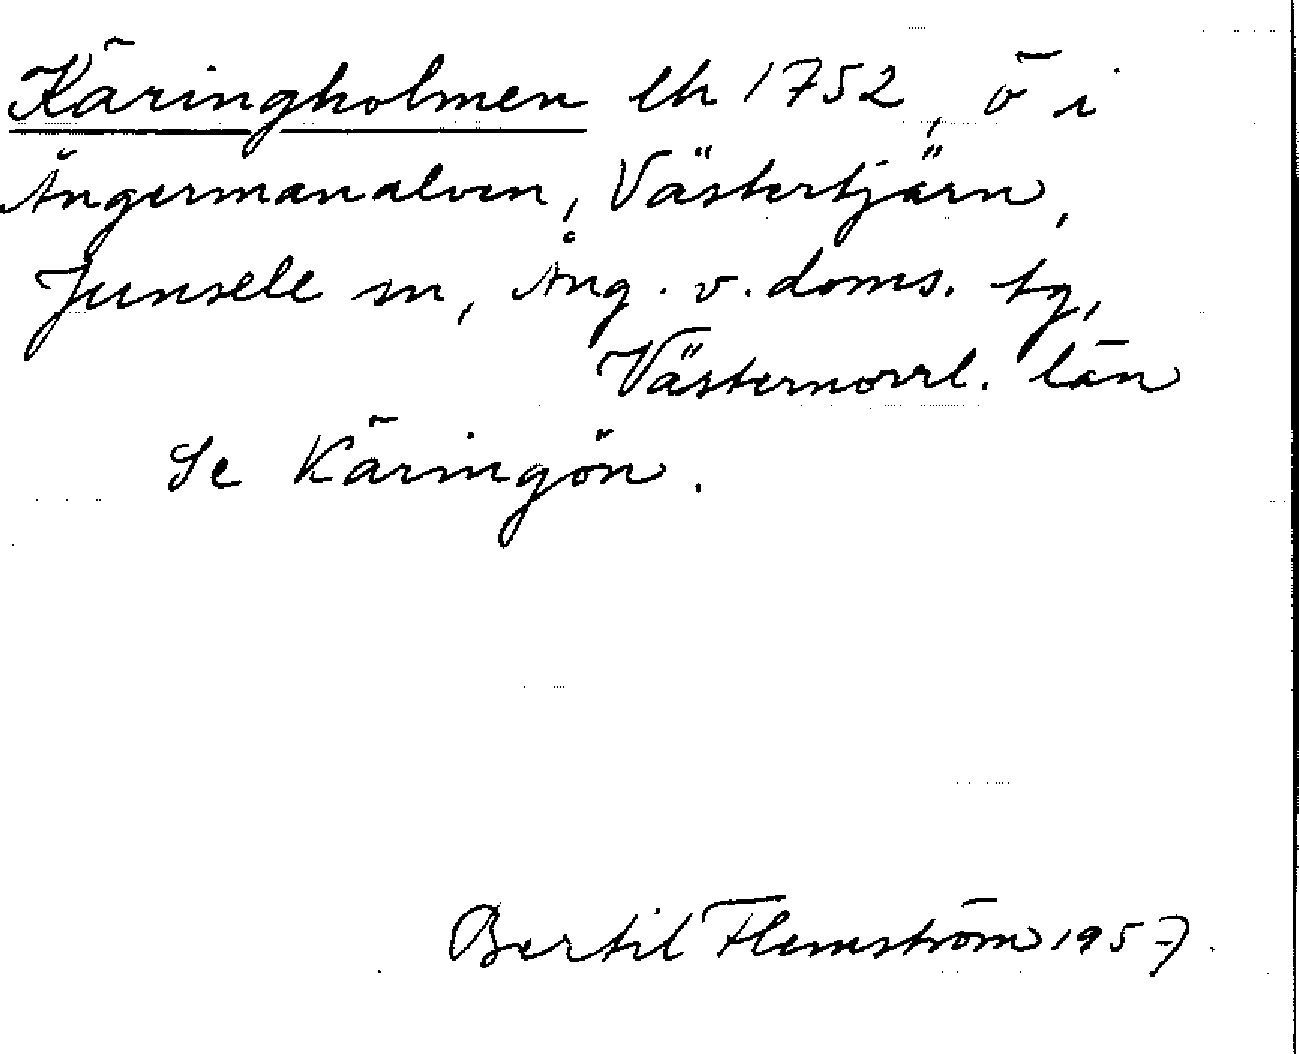 Käringholmen lh 1752, ö i
Ångermanalven, Västertjärn,
Junsele sn, Ång. v. doms. tg,
Västernorrl. län
Se Käringön.
Bertil Flemström 1957.